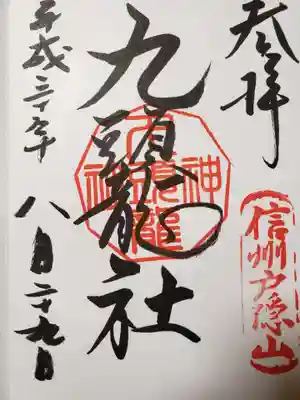 奉拝
信州戸隠山
九頭龍社
九頭龍神社
平成三十年
八月二十九日